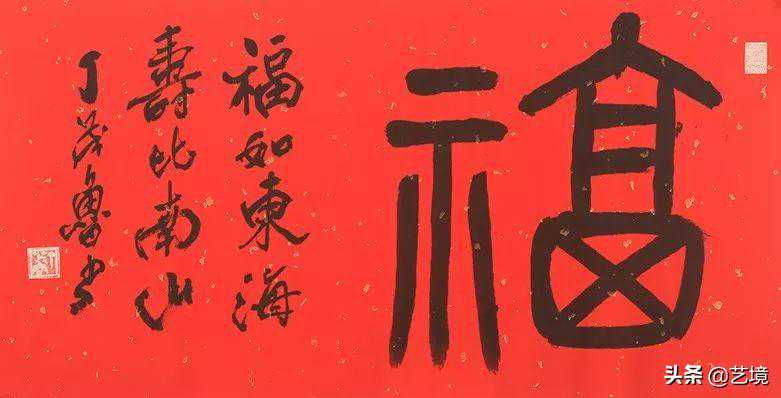 福
福如東海
壽比南山
丁茂魯书
头条 @艺境